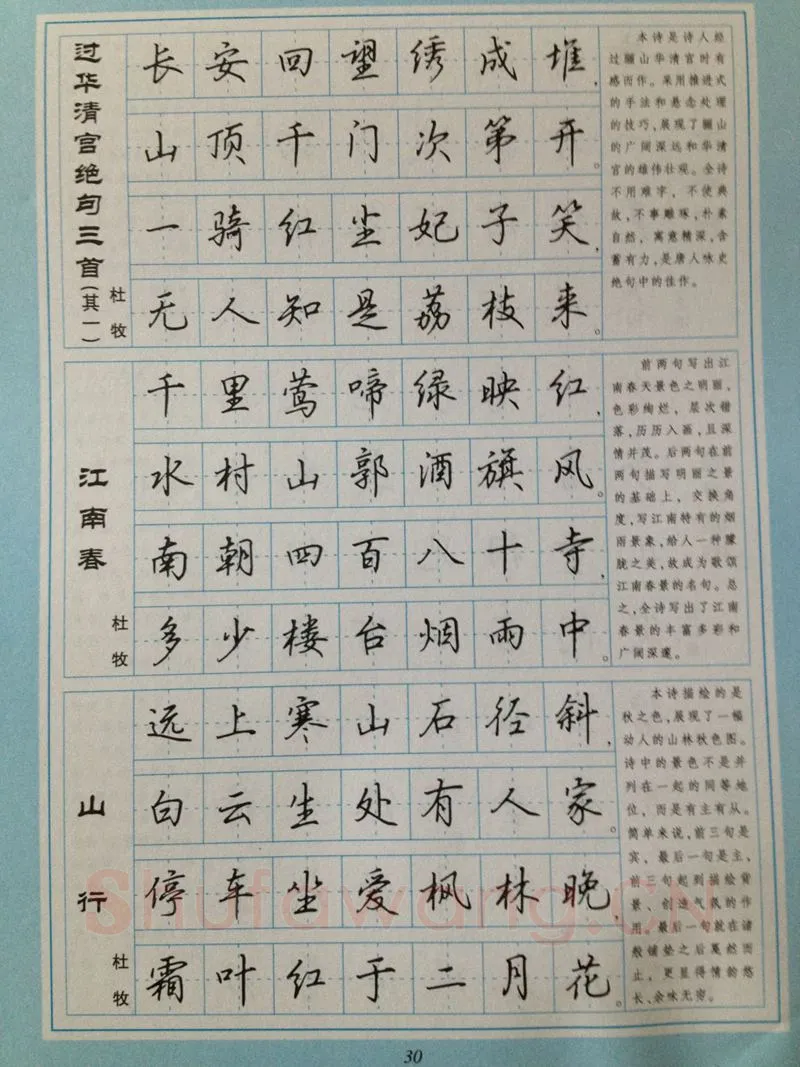 过华清宫绝句三首(其一)
杜牧
长安回望绣成堆,
山顶千门次第开。
一骑红尘妃子笑,
无人知是荔枝来。
本诗是诗人经
过骊山华清宫时有
感而作。采用推进式
的手法和悬念处理
的技巧,展现了骊山
的广阔深远和华清
宫的雄伟壮观。全诗
不用难字,不使典
故,不事雕琢,朴素
自然,寓意精深,含
蓄有力,是唐人咏史
绝句中的佳作。
江南春
杜牧
千里莺啼绿映红,
水村山郭酒旗风。
南朝四百八十寺,
多少楼台烟雨中。
前两句写出江
南春天景色之明丽,
色彩绚烂,层次错
落,历历入画,且深
情并茂。后两句在前
两句描写明丽之景
的基础上,交换角
度,写江南特有的烟
雨景象,给人一种朦
胧之美,故成为歌颂
江南春景的名句。总
之,全诗写出了江南
春景的丰富多彩和
广阔深邃。
山行
杜牧
远上寒山石径斜,
白云生处有人家。
停车坐爱枫林晚,
霜叶红于二月花。
本诗描绘的是
秋之色,展现了一幅
动人的山林秋色图。
诗中的景色不是并
列在一起的同等地
位,而是有主有从。
简单来说,前三句是
宾,最后一句是主,
前三句起到描绘背
景、创造气氛的作
用。最后一句就在诸
般铺垫之后戛然而
止,更显得情韵悠
长,余味无穷。
Shufawang.CN
30